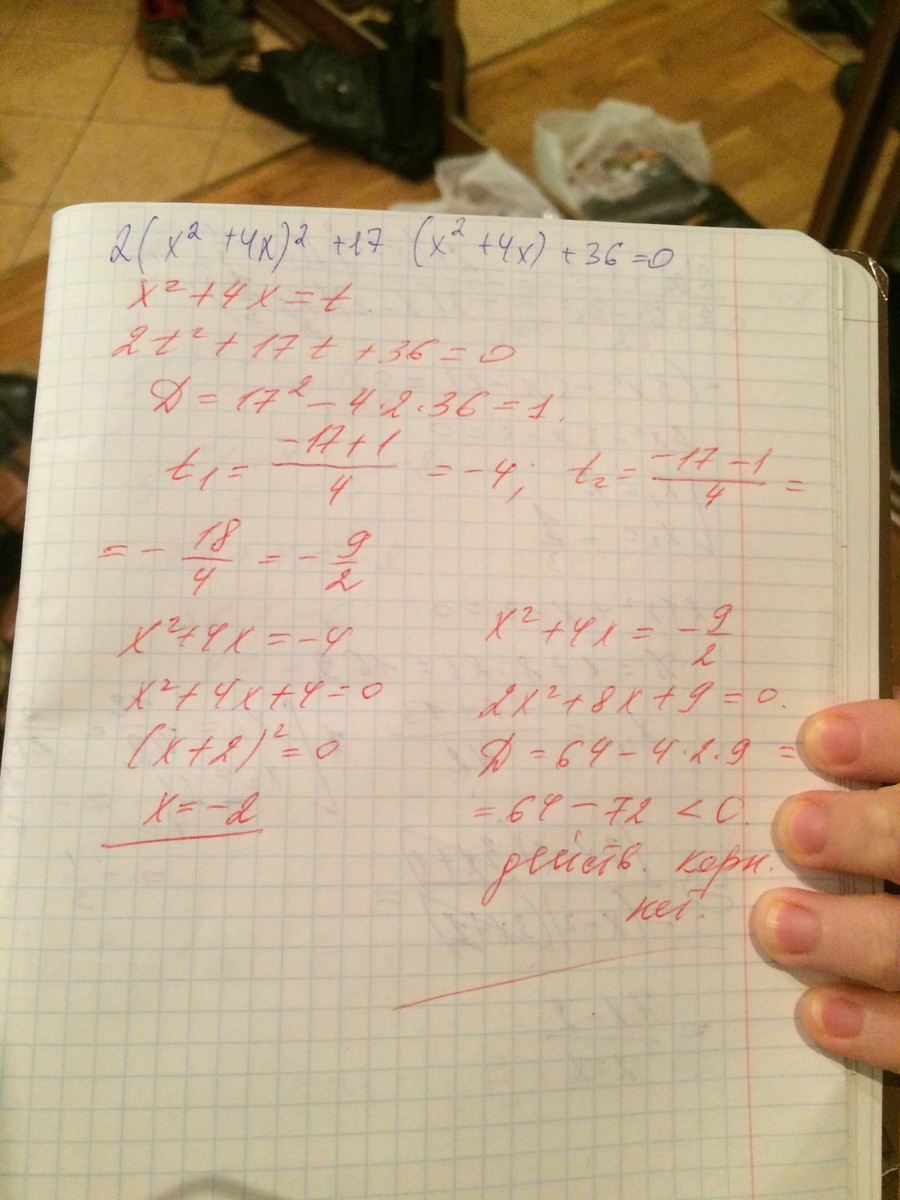 2(x² + 4x)² + 17 (x² + 4x) + 36 = 0
x² + 4x = t.
2t² + 17t + 36 = 0
D = 17² – 4·2·36 = 1.
t₁ = (–17+1)/4 = –4; t₂ = (–17–1)/4 =
= – 18/4 = – 9/2
x² + 4x = –4
x² + 4x + 4 = 0
(x+2)² = 0
x = –2
x² + 4x = –9/2
2x² + 8x + 9 = 0.
D = 64 – 4·2·9 =
= 64 – 72 < 0.
действ. корн.
нет.